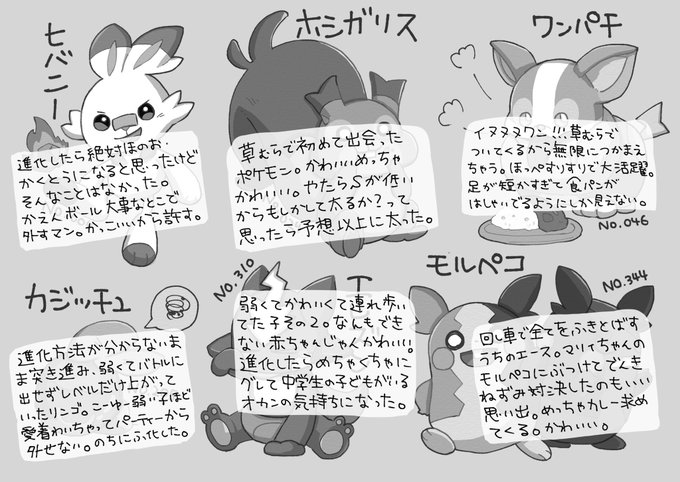 ヒバニー
進化したら絶対ほのお・
かくとうになると思ったけど
そんなことはなかった。
かえんボール大事なとこで
外すマン。かっこいいから許す。
ホシガリス
草むらで初めて出会った
ポケモン。かわいいめっちゃ
かわいい。やたらSが低い
からもしかして太るか?って
思ったら予想以上に太った。
ワンパチ
イヌヌワン!!!草むらで
ついてくるから無限につかまえ
ちゃう。ほっぺすりすりで大活躍。
足が短かすぎて食パンが
はしゃいでるようにしか見えない。
NO.046
カジッチュ
進化方法が分からないま
ま突き進み、弱くてバトルに
出せずレベルだけ上がって
いったリンゴ。こーゆー弱い子ほど
愛着わいちゃってパーティーから
外せない。のちにふ化した。
NO.310
弱くてかわいくて連れ歩い
てた子その2。なんもでき
ない赤ちゃんじゃんかわいい!
進化したらめちゃくちゃに
グレて中学生の子どもがいる
オカンの気持ちになった。
モルペコ
NO.344
回し車で全てをふきとばす
うちのエース。マリィちゃんの
モルペコにぶつけてでんき
ねずみ対決したのもいい
思い出。めっちゃカレー求め
てくる。かわいい。